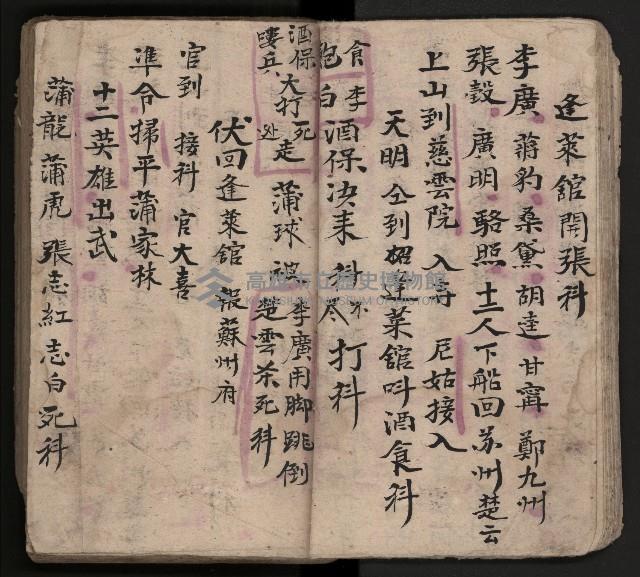 逢萊館開張科
李廣 蔣豹 桑黛 胡逵 甘寗 鄭九州
張毅 廣明 駱照 十二人下船回苏州 楚云
上山到慈雲院 入寺 尼姑接入
天明 仝到 逢萊館叫酒食科
食 李
飽 白 酒保决来 科 打科
酒保 大打死 走 蒲球 李廣用脚跳倒
嘍兵 处 楚雲杀死科
伏回逢萊舘 報蘇州府
官到 接科 官大喜
準令掃平蒲家林
十二英雄出武
蒲龍 蒲虎 張志紅 志白 死科
高雄市立歷史博物館
KAOHSIUNG MUSEUM OF HISTORY